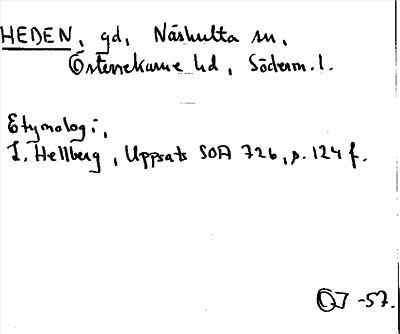 HEDEN, gd, Näshulta sn,
Österrekarne hd, Söderm. l.
Etymologi,
L. Hellberg, Uppsats SOA 726, p. 124 f.
OJ -57.